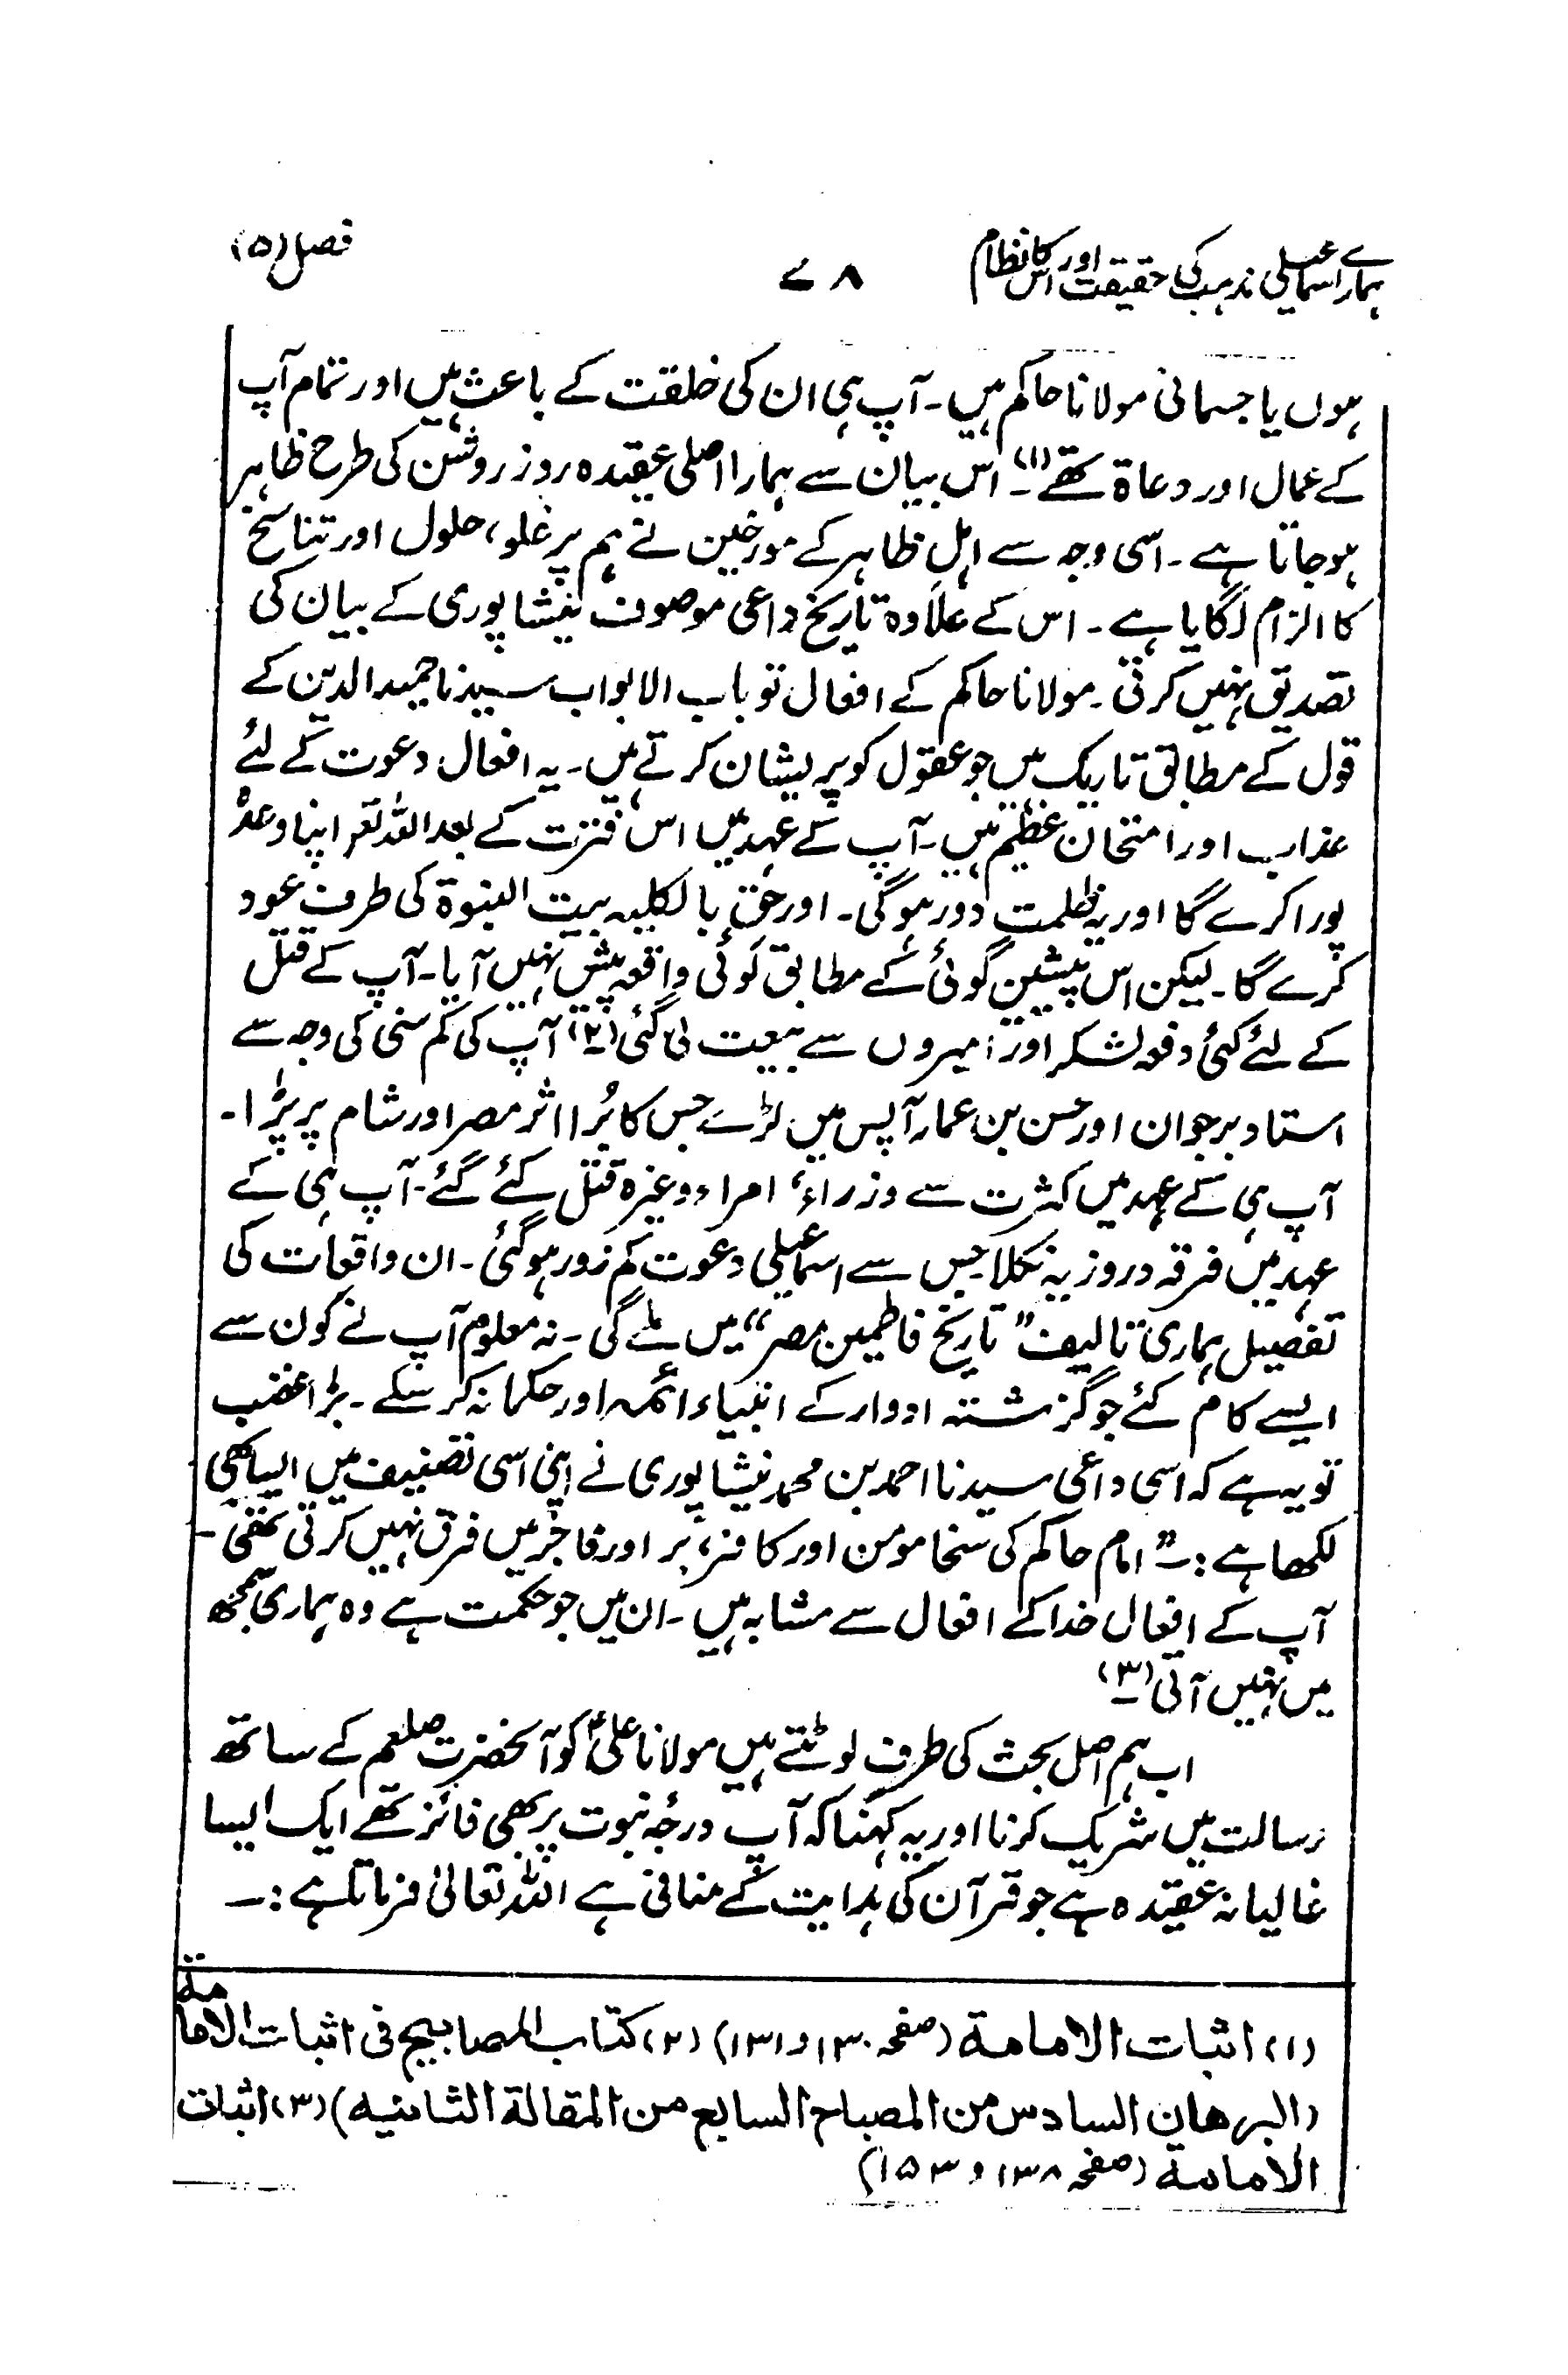 ہمارے اسماعیلی مذہب کی حقیقت اور اس کا نظام ۷۸ فصل (۵)
ہوں یا جسمانی مولانا حاکم ہیں۔ آپ ہی ان کی خلقت کے باعث ہیں اور تمام آپ
کے عمال اور دعاۃ تھے (۱)۔ اس بیان سے ہمارا اصلی عقیدہ روز روشن کی طرح ظاہر
ہوجاتا ہے۔ اسی وجہ سے اہل ظاہر کے مورخین نے ہم پر غلو، حلول اور تناسخ
کا الزام لگایا ہے۔ اس کے علاوہ تاریخ داعی موصوف نیشاپوری کے بیان کی
تصدیق نہیں کرتی۔ مولانا حاکم کے افعال تو باب الابواب سیدنا حمید الدین کے
قول کے مطابق تاریک ہیں جو عقول کو پریشان کرتے ہیں۔ یہ افعال دعوت کے لئے
عذاب اور امتحان عظیم ہیں۔ آپ کے عہد میں اس فترت کے بعد اللہ تعؔ اپنا وعدہ
پورا کرے گا اور یہ ظلمت دور ہوگی۔ اور حق بالکلیہ بیت النبوۃ کی طرف عود
کرے گا۔ لیکن اس پیشین گوئی کے مطابق کوئی واقعہ پیش نہیں آیا۔ آپ کے قتل
کے لئے کئی دفعہ لشکر اور امیروں سے بیعت لی گئی (۲) آپ کی کم سنی کی وجہ سے
استاد برجوان اور حسن بن عمار آپس میں لڑے جس کا بُرا اثر مصر اور شام پر پڑا۔
آپ ہی کے عہد میں کثرت سے وزراء، امراء وغیرہ قتل کئے گئے۔ آپ ہی کے
عہد میں فرقہ دروزیہ نکلا جس سے اسماعیلی دعوت کم زور ہوگئی۔ ان واقعات کی
تفصیل ہماری تالیف "تاریخ فاطمیین مصر" میں ملے گی۔ نہ معلوم آپ نے کون سے
ایسے کام کئے جو گزشتہ ادوار کے انبیاء ائمہ اور حکما نہ کر سکے۔ بڑا غضب
تو یہ ہے کہ اسی داعی سیدنا احمد بن محمد نیشاپوری نے اپنی اسی تصنیف میں ایسا بھی
لکھا ہے :۔ "امام حاکم کی سخا مومن اور کافر، بر اور فاجر میں فرق نہیں کرتی تھی۔
آپ کے افعال خدا کے افعال سے مشابہ ہیں۔ ان میں جو حکمت ہے وہ ہماری سمجھ
میں نہیں آتی (۳)
اب ہم اصل بحث کی طرف لوٹتے ہیں مولانا علیؑ کو آنحضرت صلعم کے ساتھ
رسالت میں شریک کرنا اور یہ کہنا کہ آپ درجۂ نبوت پر بھی فائز تھے ایک ایسا
غالیانہ عقیدہ ہے جو قرآن کی ہدایت کے منافی ہے اللہ تعالیٰ فرماتا ہے :۔
(۱) اثبات الامامة (صفحہ ۱۳۰ و ۱۳۱) (۲) کتاب المصابیح فی اثبات الامامة
(البرهان السادس من المصباح السابع من المقالة الثانیه) (۳) اثبات
الامامة (صفحہ ۱۳۸ و ۱۵۳)